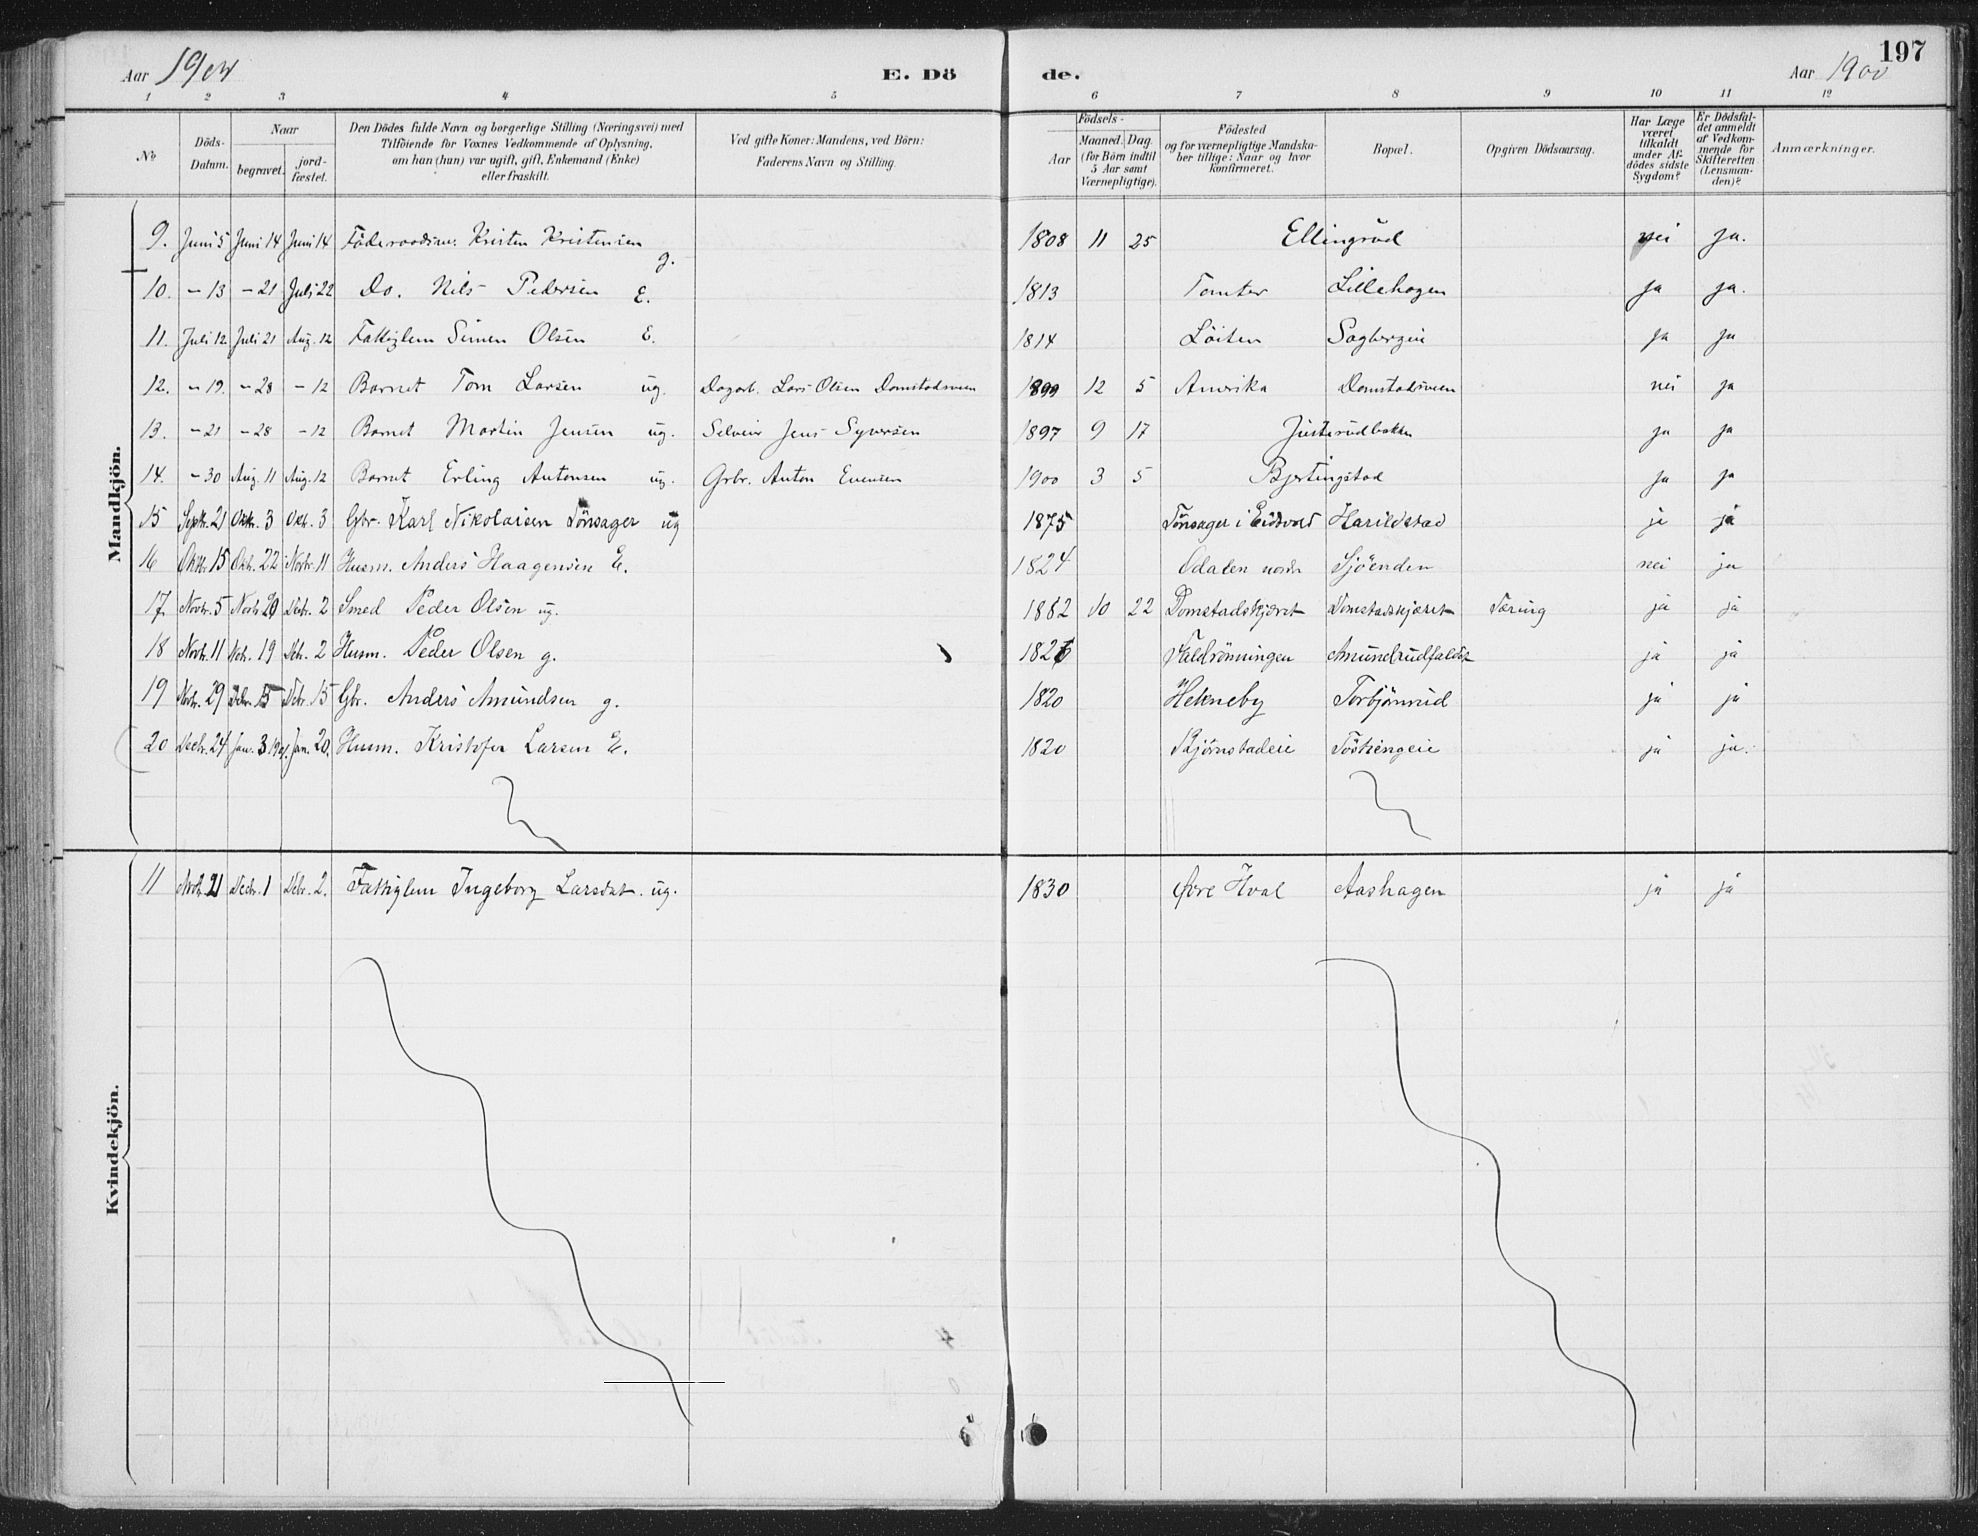 197
Aar 1900 E. Dö de. Aar 1900
1 2 3 4 5 6 7 8 9 10 11 12
No Döds-Datum. Naar begravet. jord-fæstet. Den Dödes fulde Navn og borgerlige Stilling (Næringsvei) med Tilföiende for Voxnes Vedkommende af Oplysning, om han (hun) var ugift, gift, Enkemand (Enke) eller fraskilt. Ved gifte Koner: Mandens, ved Börn: Faderens Navn og Stilling. Födsels- Aar Maaned. Dag. (for Börn indtil 5 Aar samt Værnepligtige). Födested og for værnepligtige Mandskaber tillige: Naar og hvor konfirmeret. Bopæl. Opgiven Dödsaarsag. Har Læge været tilkaldt under Afdödes sidste Sygdom? Er Dödsfaldet anmeldt af Vedkommende for Skifteretten (Lensmanden)? Anmærkninger.
Mandkjön.
9. Juni 5 Juni 14 Juni 14 Föderaadsm. Kristen Kristensen g. 1808 11 25 Ellingsrud nei ja.
10. - 13 - 21 Juli 22 Do. Nils Pedersen E. 1813 Tomter Lillehagen ja ja.
11. Juli 12 Juli 21 Aug. 12 Fattiglem Simen Olsen E. 1814 Löiten Sagbergeie ja ja
12. - 19. - 28 - 12 Barnet Tom Larsen ug. Dagarb. Lars Olsen Domstadsveen 1899 12 5 Amerika Domstadsveen nei ja
13. - 21 - 28 - 12 Barnet Martin Jensen ug. Selveier Jens Syversen 1897 9 17 Justerudbakken ja ja
14. - 30 Aug. 11 Aug. 12 Barnet Erling Antonsen ug. Grbr. Anton Evensen 1900 3 5 Bjertingstad ja ja
15 Septr. 21 Oktr. 3 Okt. 3 Gbr. Karl Nikolaisen Tönsager ug 1875 Tönsager i Eidsvold Harildstad ja ja
16 Oktr. 15 Oktr. 22 Novbr. 11 Husm. Anders Haagensen E. 1824 Odalen nordr Sjöenden nei ja
17. Novbr. 5 Novbr 20 Decbr. 2 Smed Peder Olsen ug. 1882 10 22 Domstadskjæret Domstadskjæret Tæring ja ja
18 Novbr. 11 Nvbr. 19 Dcbr. 2 Husm. Peder Olsen g. 1826 Faldrönningen Amundrudfaldet ja ja
19 Novbr. 29 Decbr. 15 Debr. 15 Gbr. Anders Amundsen g. 1820 Hekneby Torbjörnrud ja ja
20 Decbr. 24 Jan. 3 1901. Jan. 20. Husm. Kristofer Larsen E. 1820 Bjørnstadeie Tostiengeie ja ja.
Kvindekjön.
11 Novbr. 21 Decbr. 1 Debr. 2. Fattiglem Ingeborg Larsdat. ug. 1830 Øvre Hval Aashagen ja ja